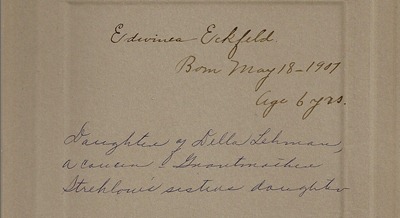 Edwinea Eckfeld
Born May 18-1907
Age 6 yrs.
Daughter of Della Lehman,
a cousin Grantmother
Strehlow's sisters daughter